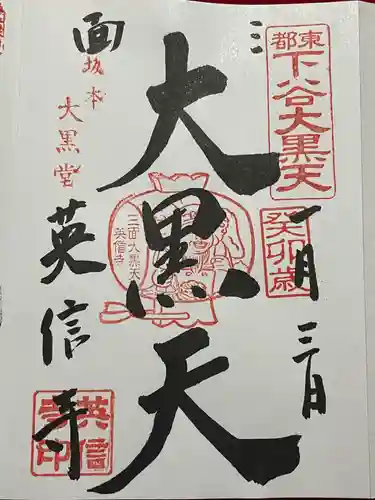 東都
下谷大黒天
癸卯歳
一月三日
三
大黒天
三面大黒天
英信寺
面
坂本
大黒堂
英信寺
英信
寺印